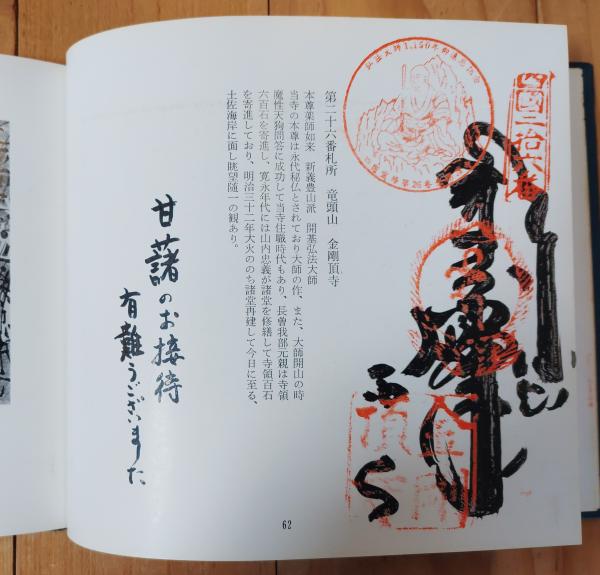 四國二拾六番
弘法大師1,150年御遠忌記念
四国霊場第26番
第二十六番札所　竜頭山　金剛頂寺
本尊薬師如来　新義豊山派　開基弘法大師
当寺の本尊は永代秘仏とされており大師の作、また、大師開山の時
魔性天狗問答に成功して当寺住職時代もあり、長曽我部元親は寺領
六百石を寄進し、寛永年代には山内忠義が諸堂を修繕して寺領百石
を寄進しており、明治三十二年大火ののち諸堂再建して今日に至る、
土佐海岸に面し眺望随一の観あり。
甘藷のお接待
有難うございました
62